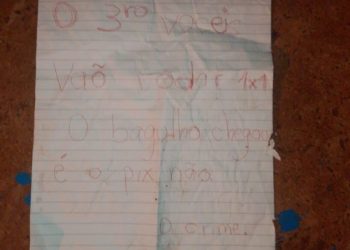 O 3ro vocês
Vão rodar 1x1
O bagulho chegou
é o pix não
O crime.